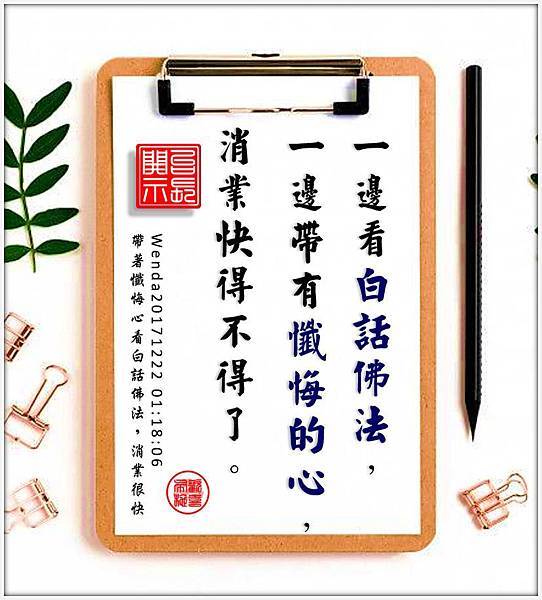 一邊看白話佛法，
一邊帶有懺悔的心，
消業快得不得了。
Wenda20171222 01:18:06
帶著懺悔心看白話佛法，消業很快